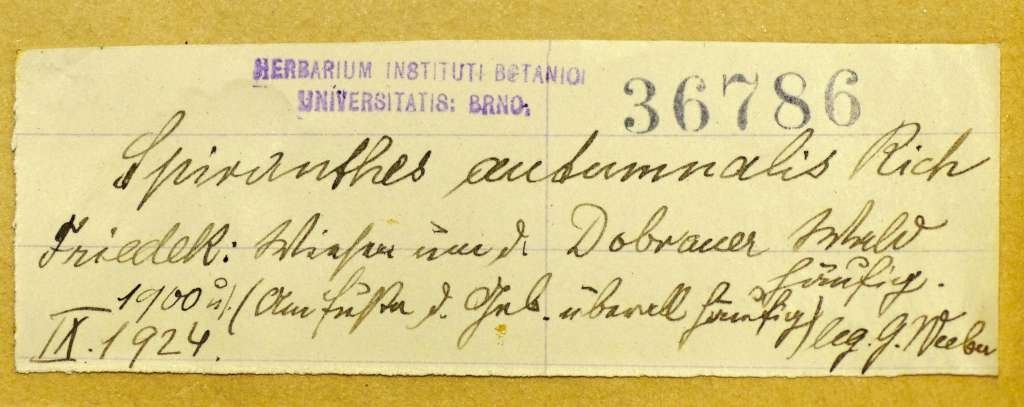 HERBARIUM INSTITUTI BOTANICI
UNIVERSITATIS: BRNO.
36786
Spiranthes autumnalis Rich
Friedek: Wiesen um d. Dobrauer Wald
häufig.
1900 u. (Am Fuße d. Geb. überall häufig)
IX. 1924. leg. G. Weeber